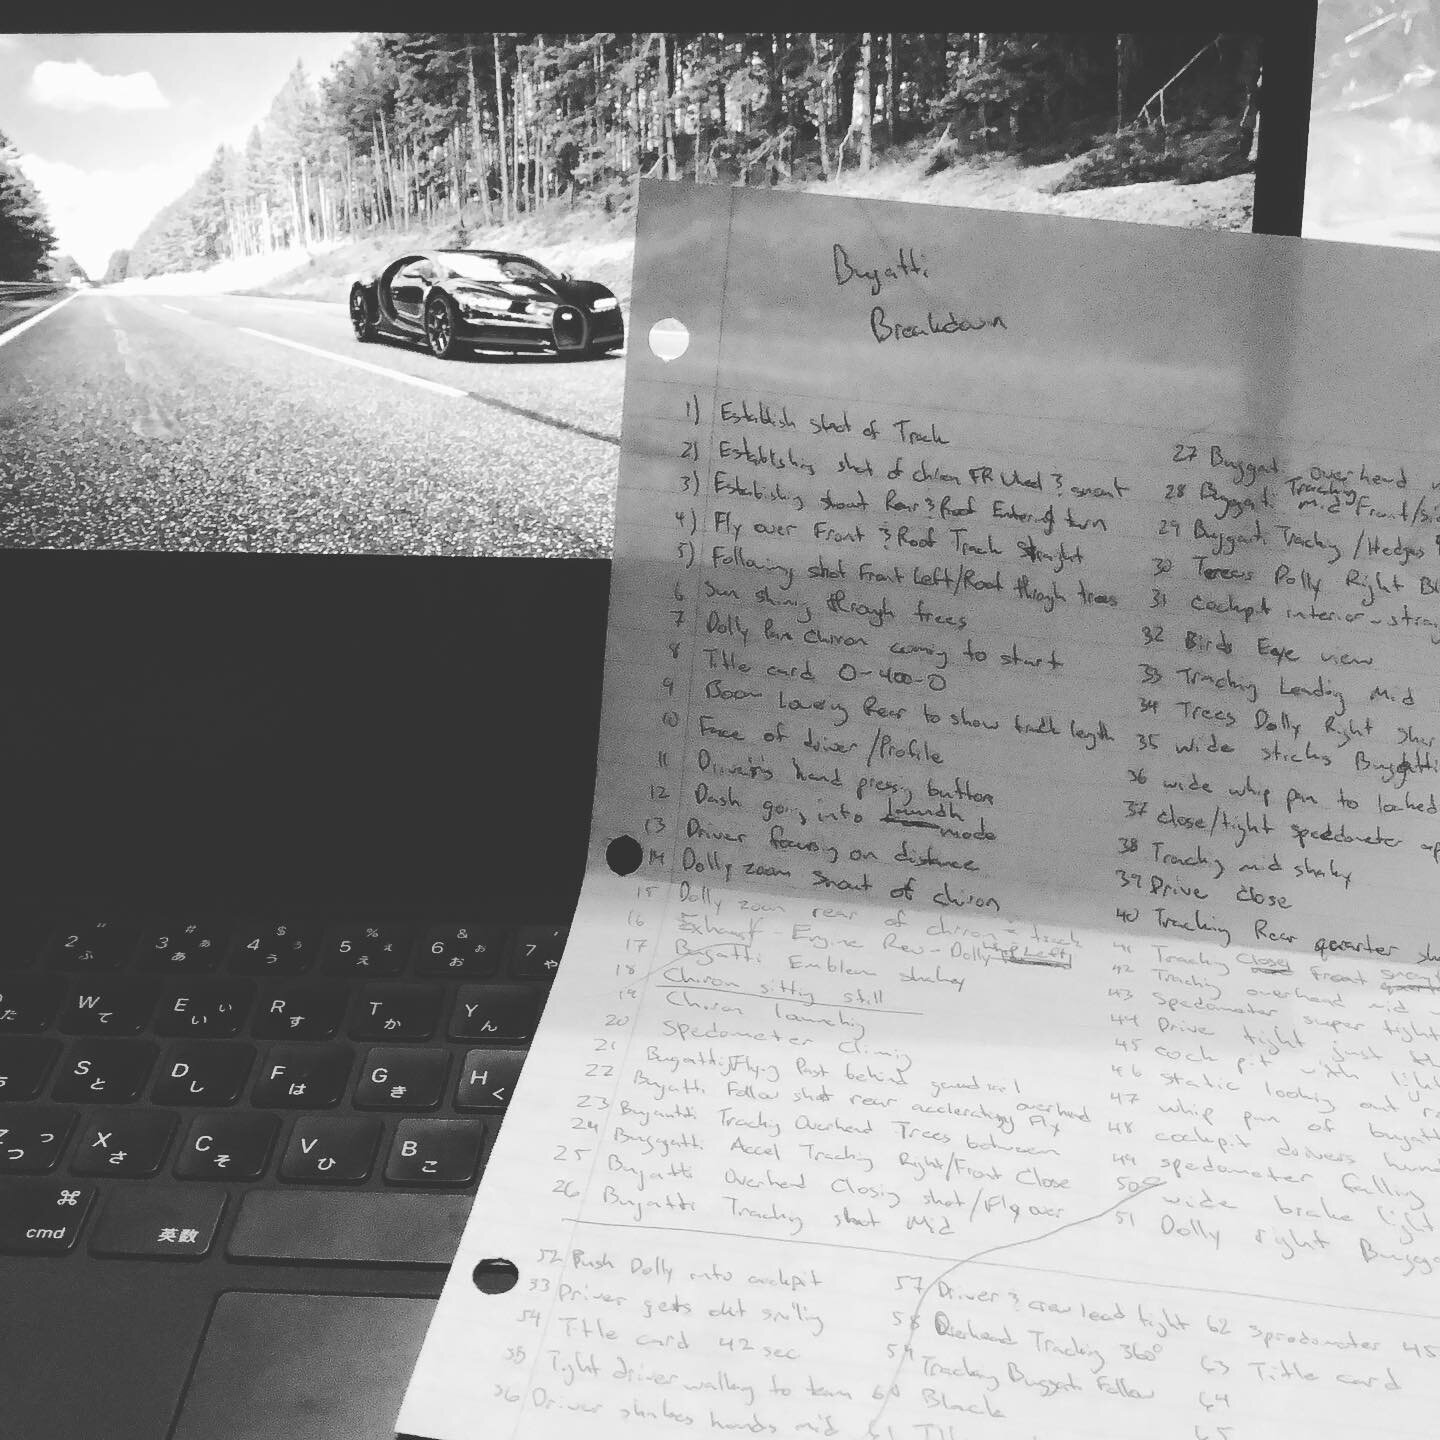 Bugatti
Breakdown
1) Establish shot of Track
2) Establishing shot of chiron FR Wheel & snout
3) Establishing shout Rear & Roof Entering turn
4) Fly over Front & Roof Track Straight
5) Following shot Front Left/Roof through trees
6 Sun shining through trees
7 Dolly Pan Chiron coming to start
8 Title card 0-400-0
9 Boom lowering Rear to show track length
10 Face of driver/Profile
11 Driver's hand pressing button
12 Dash going into launch mode
13 Driver focusing on distance
14 Dolly zoom Snout of chiron
15 Dolly zoom rear of chiron - track
16 Exhaust - Engine Rev - Dolly Left
17 Bugatti Emblem shakey
18 Chiron sitting still
19 Chiron launching
20 Spedometer Climing
21 Bugatti Flying Past behind
22 Bugatti Follow shot rear accelerating Fly overhead
23 Buganti Tracking Overhead Trees between
24 Buggatti Accel Tracking Right/Front Close
25 Bugatti Overhead Closing shot/Fly over
26 Bugatti Tracking shot Mid
27 Buggati overhead
28 Buggati Tracking mid Front/
29 Buggati Tracking/Hedges
30 Dolly Right
31 Cockpit interior -
32 Birds Eye view
33 Tracking Leading Mid
34 Trees Dolly Right
35 wide sticks Buggatti
36 wide whip pan to locked
37 close/tight speedometer
38 Tracking mid shaky
39 Drive close
40 Tracking Rear quarter
41 Tracking Close Front
42 Tracking overhead mid
43 Spedometer super tight
44 Drive tight just
45 cock pit with
46 static looking out
47 whip pan of
48 cockpit drivers
49 spedometer falling
50 wide brake
51 Dolly right
52 Push Dolly into cockpit
53 Driver gets out smiling
54 Title card 42 sec
55 Tight driver walking to team
56 Driver shakes hands mid
57 Driver & crew lead tight
58 Overhead Tracking 360°
59 Tracking Buggati Follow
60 Black
61
62 Spedometer
63 Title card
64
65
2 ふ
# 3 ぁ あ
$ 4 ぅ う
% 5 ぇ え
& 6 ぉ お
' 7 ゃ や
た W て E ぃ い R す T か Y ん
S と D し F は G き H く
っ つ X さ C そ V ひ B こ
⌘ cmd 英数